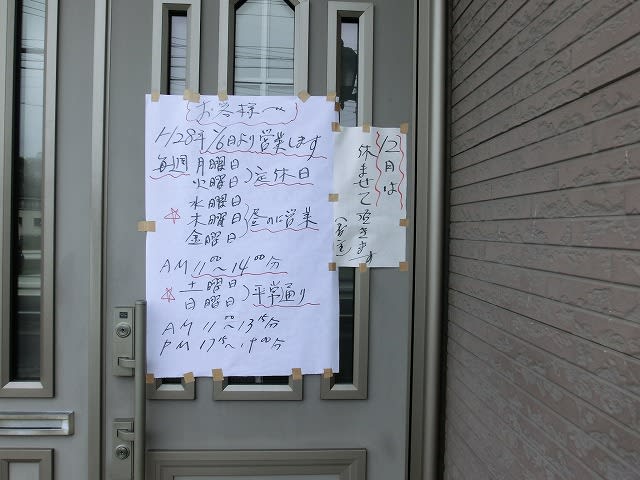 お客様へ
H28年1/6日より営業します
毎週 月曜日
火曜日 ）定休日
水曜日
☆ 木曜日 昼のに営業
金曜日
AM 11:00〜14:00分
☆ 土曜日
日曜日 ）平常通り
AM 11:00〜13:45分
PM 17:15〜19:00分
12月は
休ませて頂きます